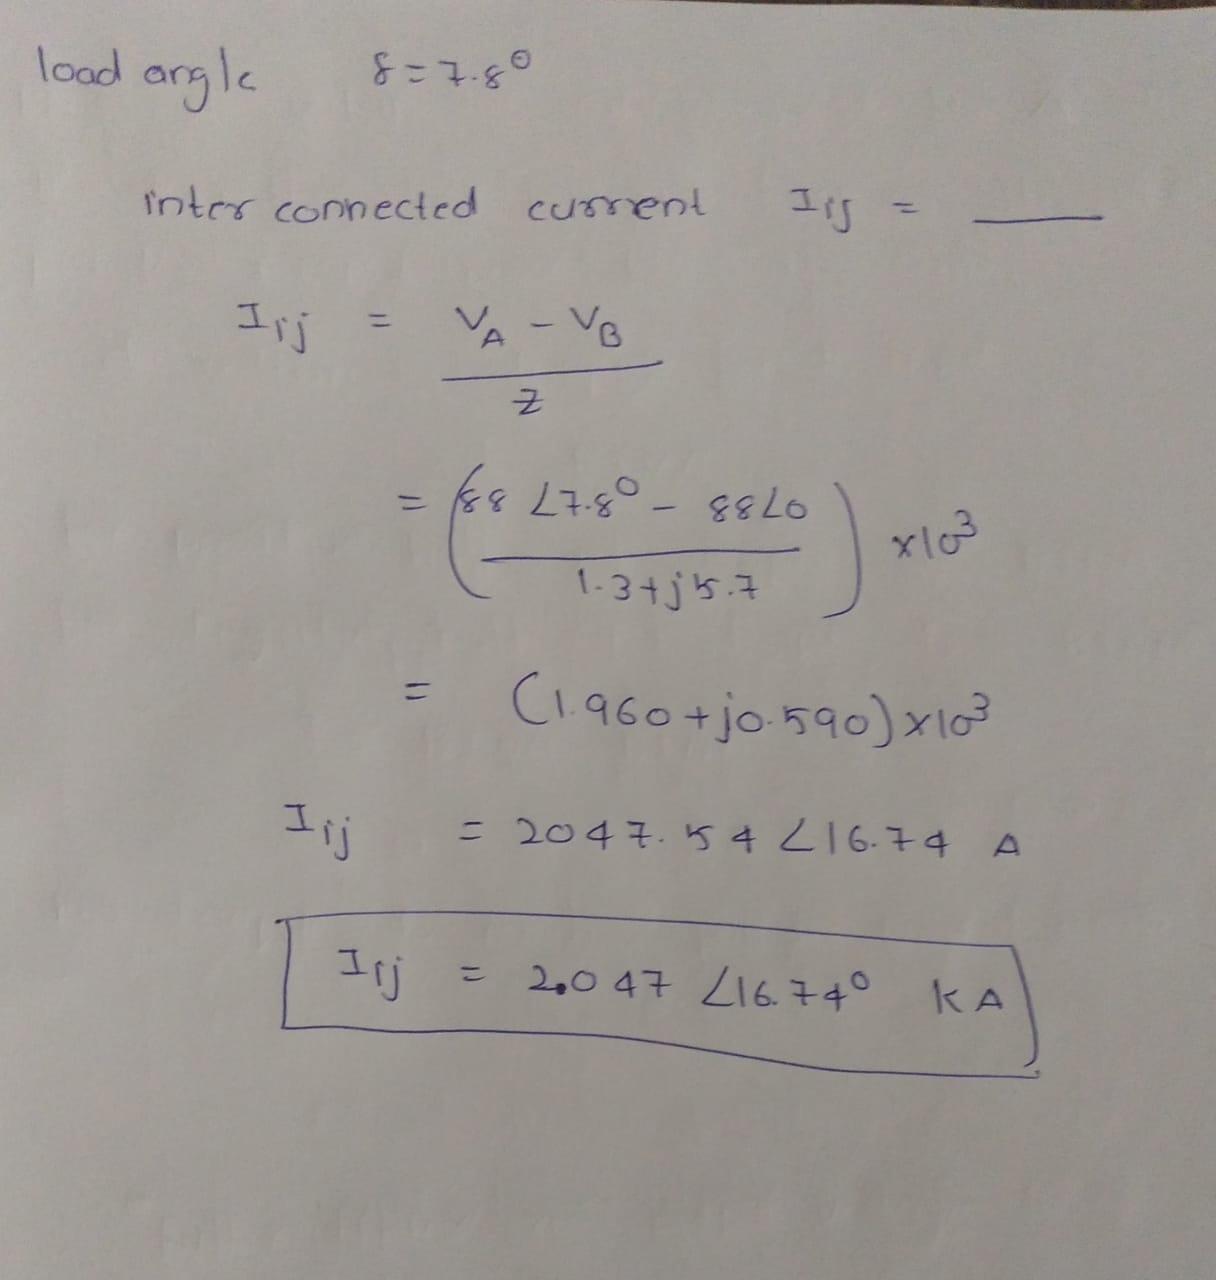 load angle δ = 7.8°
inter connected current Iij = ____
Iij = VA - VB
Z
= (88 ∠7.8° - 88∠0
1.3+j5.7) x10³
= (1.960+j0.590)x10³
Iij = 2047.54 ∠16.74 A
Iij = 2.047 ∠16.74° KA